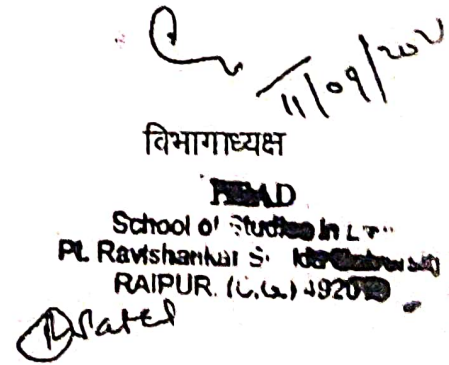 11/09/202
विभागाध्यक्ष
HEAD
School of Studies in L
Pt. Ravishankar S
RAIPUR. (C.G.) 4920
Patel